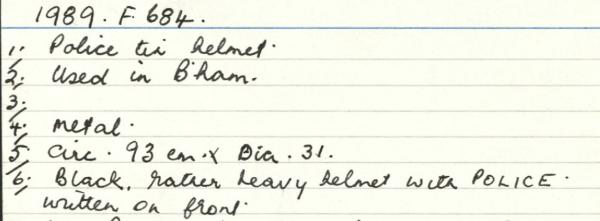 1989. F. 684.
1. Police tin helmet.
2. Used in B'ham.
3.
4. metal.
5. circ. 93 cm. x Dia. 31.
6. Black, rather heavy helmet with POLICE.
written on front.